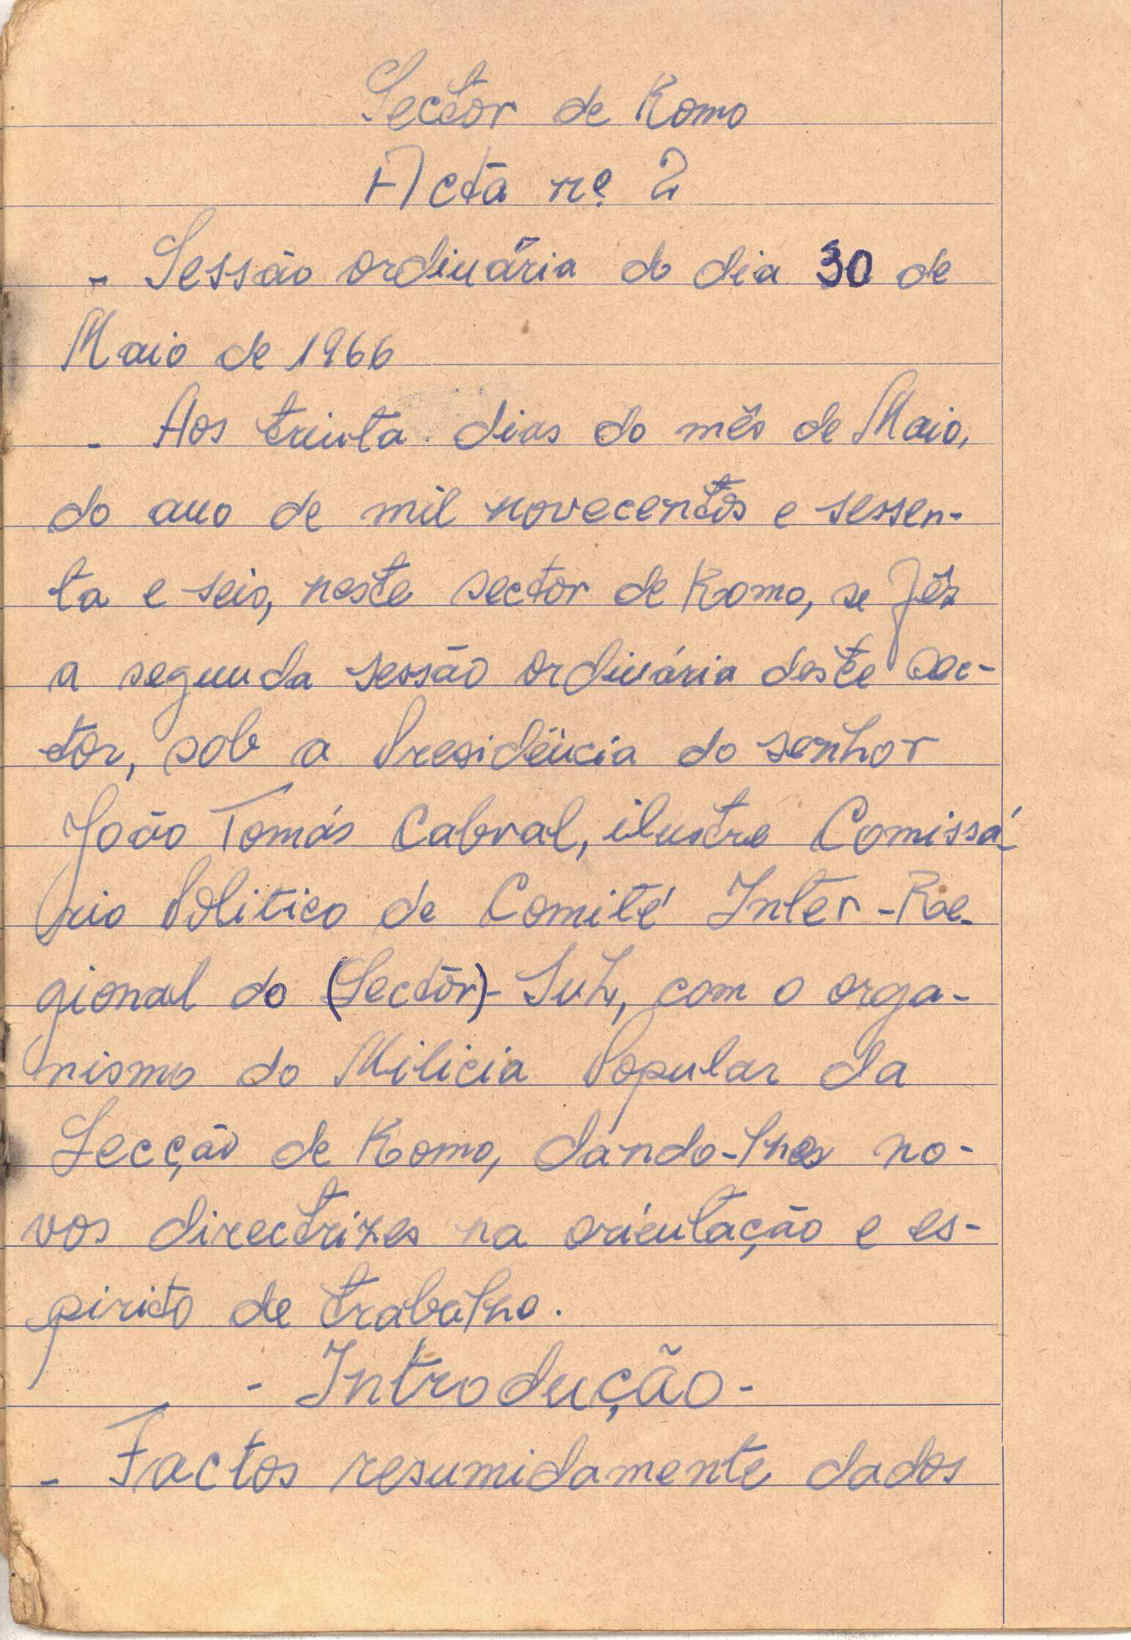 Sector de Komo
Acta nº 2
- Sessão ordinária do dia 30 de
Maio de 1966
- Aos trinta dias do mês de Maio,
do ano de mil novecentos e sessen-
ta e seis, neste sector de Komo, se fêz
a segunda sessão ordinária deste Sec-
tor, sob a Presidência do senhor
João Tomás Cabral, ilustre Comissá-
rio Politico de Comité Inter-Re-
gional do (Sector)-Sul, com o orga-
nismo do Milicia Popular da
Secção de Komo, dando-lhes no-
vos directrizes na orientação e es-
pirito de trabalho.
- Introdução-
- Factos resumidamente dados